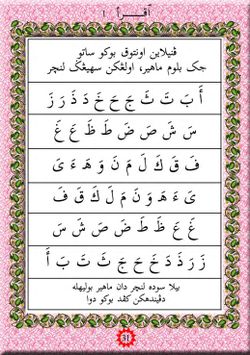 أقرأ ١
ڤنيلاين اونتوق بوكو ساتو
جک بلوم ماهير، اولڠكن سهيڠݢ لنچر
أَ بَ تَ ثَ جَ حَ خَ دَ ذَ رَ زَ
سَ شَ صَ ضَ طَ ظَ عَ غَ
فَ قَ كَ لَ مَ نَ وَ هَ ءَ يَ
يَ ءَ هَ وَ نَ مَ لَ كَ قَ فَ
غَ عَ ظَ طَ ضَ صَ شَ سَ
زَ رَ ذَ دَ خَ حَ جَ ثَ تَ بَ أَ
بيلا سوده لنچر دان ماهير بوليهله
دڤيندهكن كڤد بوكو دوا